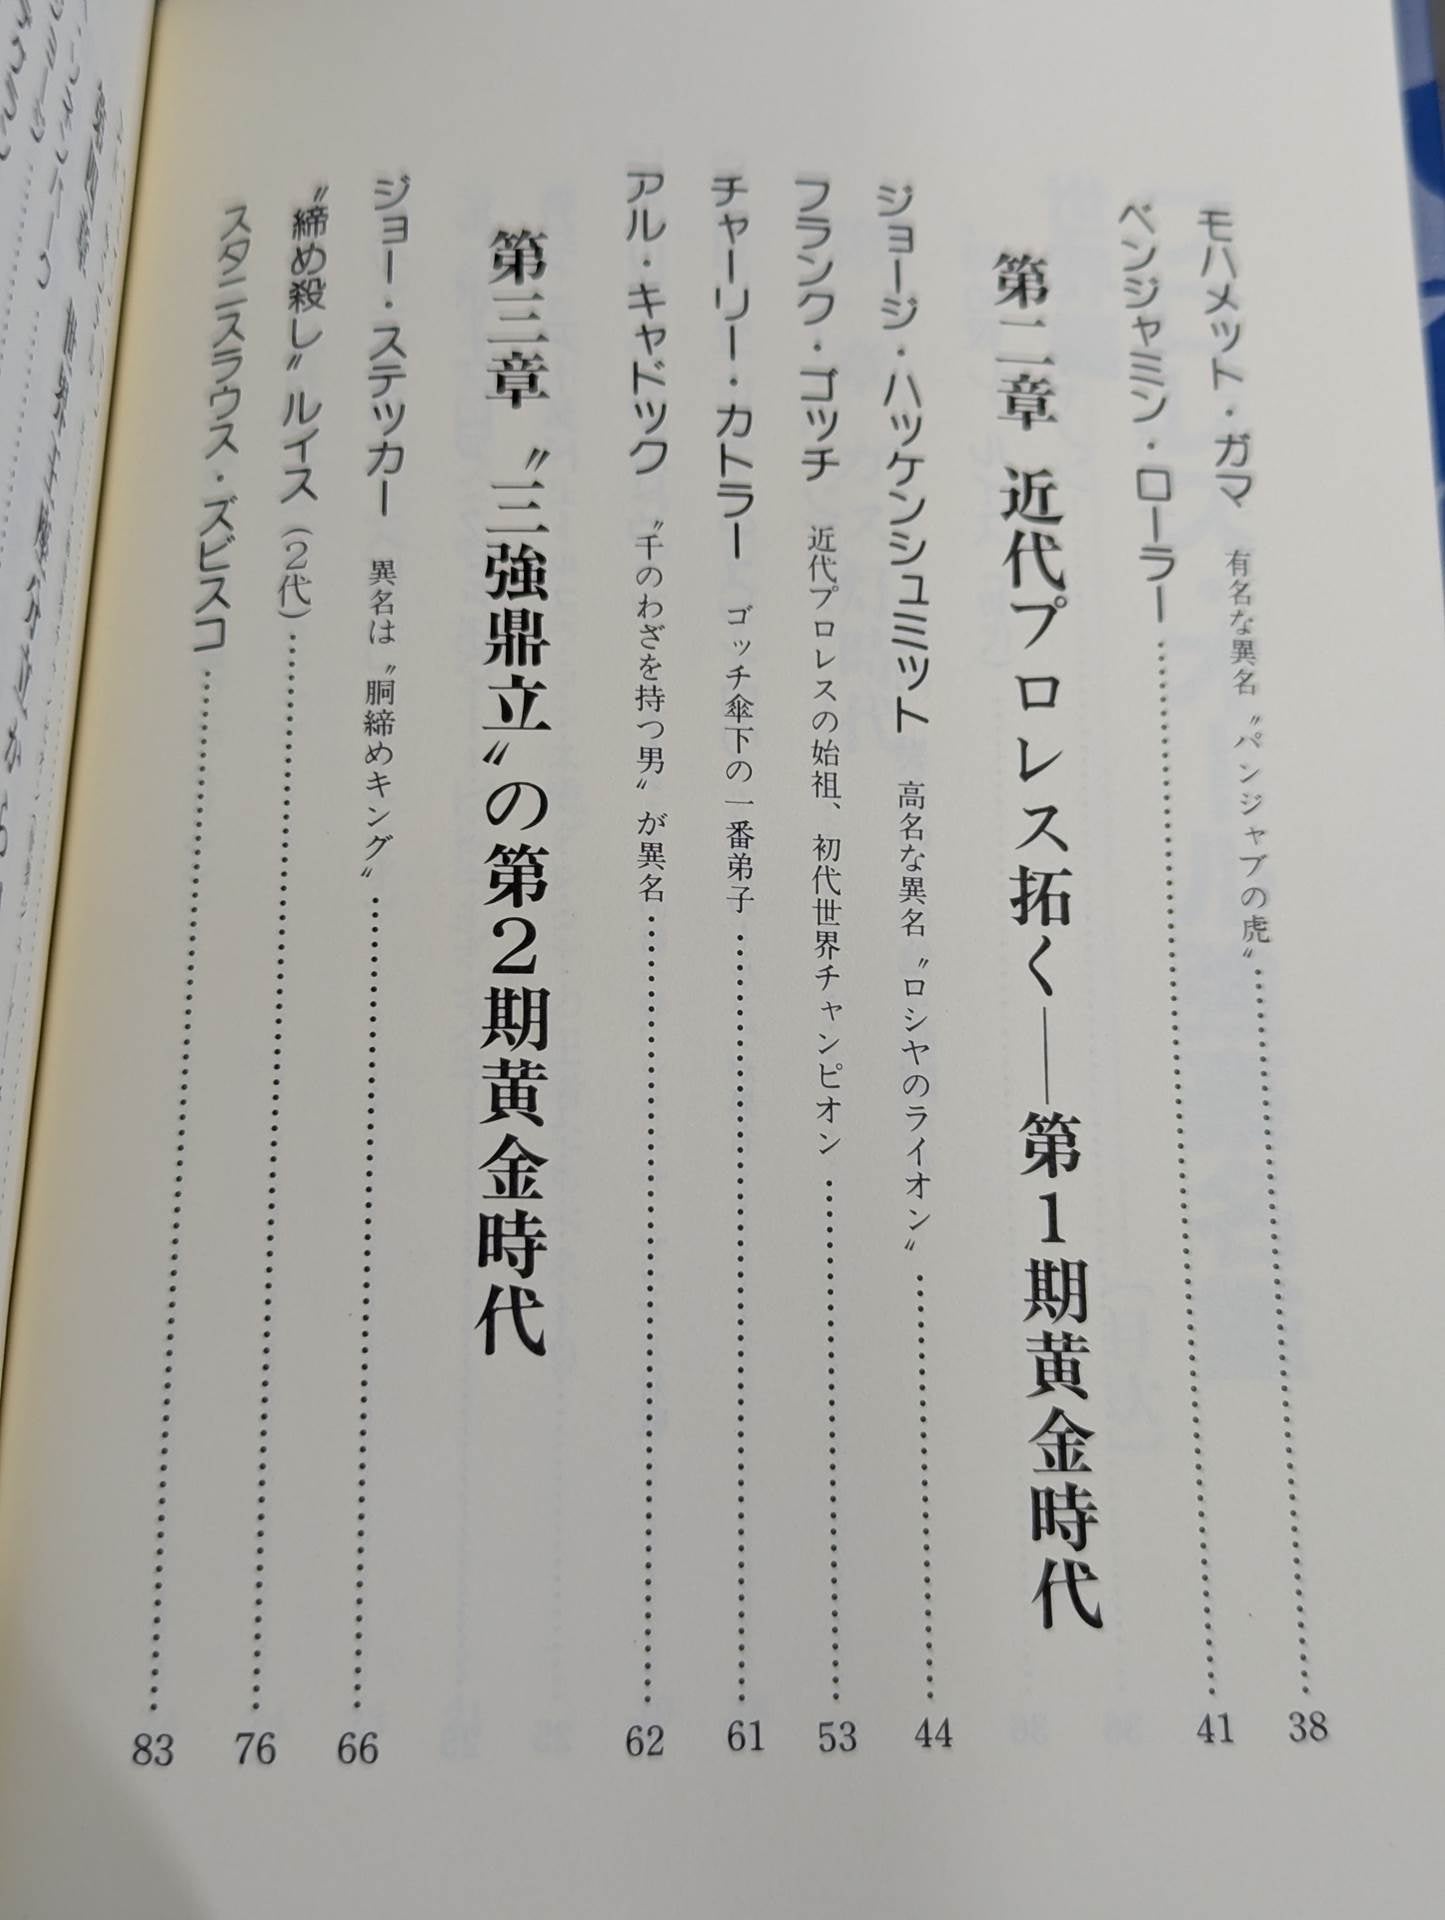 モハメット・ガマ 有名な異名〝パンジャブの虎〟……38
ベンジャミン・ローラー……41
第二章 近代プロレス拓く――第1期黄金時代
ジョージ・ハッケンシュミット 高名な異名〝ロシヤのライオン〟……44
フランク・ゴッチ 近代プロレスの始祖、初代世界チャンピオン……53
チャーリー・カトラー ゴッチ傘下の一番弟子……61
アル・キャドック 〝千のわざを持つ男〟が異名……62
第三章 〝三強鼎立〟の第2期黄金時代
ジョー・ステッカー 異名は〝胴締めキング〟……66
〝締め殺し〟ルイス(2代)……76
スタニスラウス・ズビスコ……83